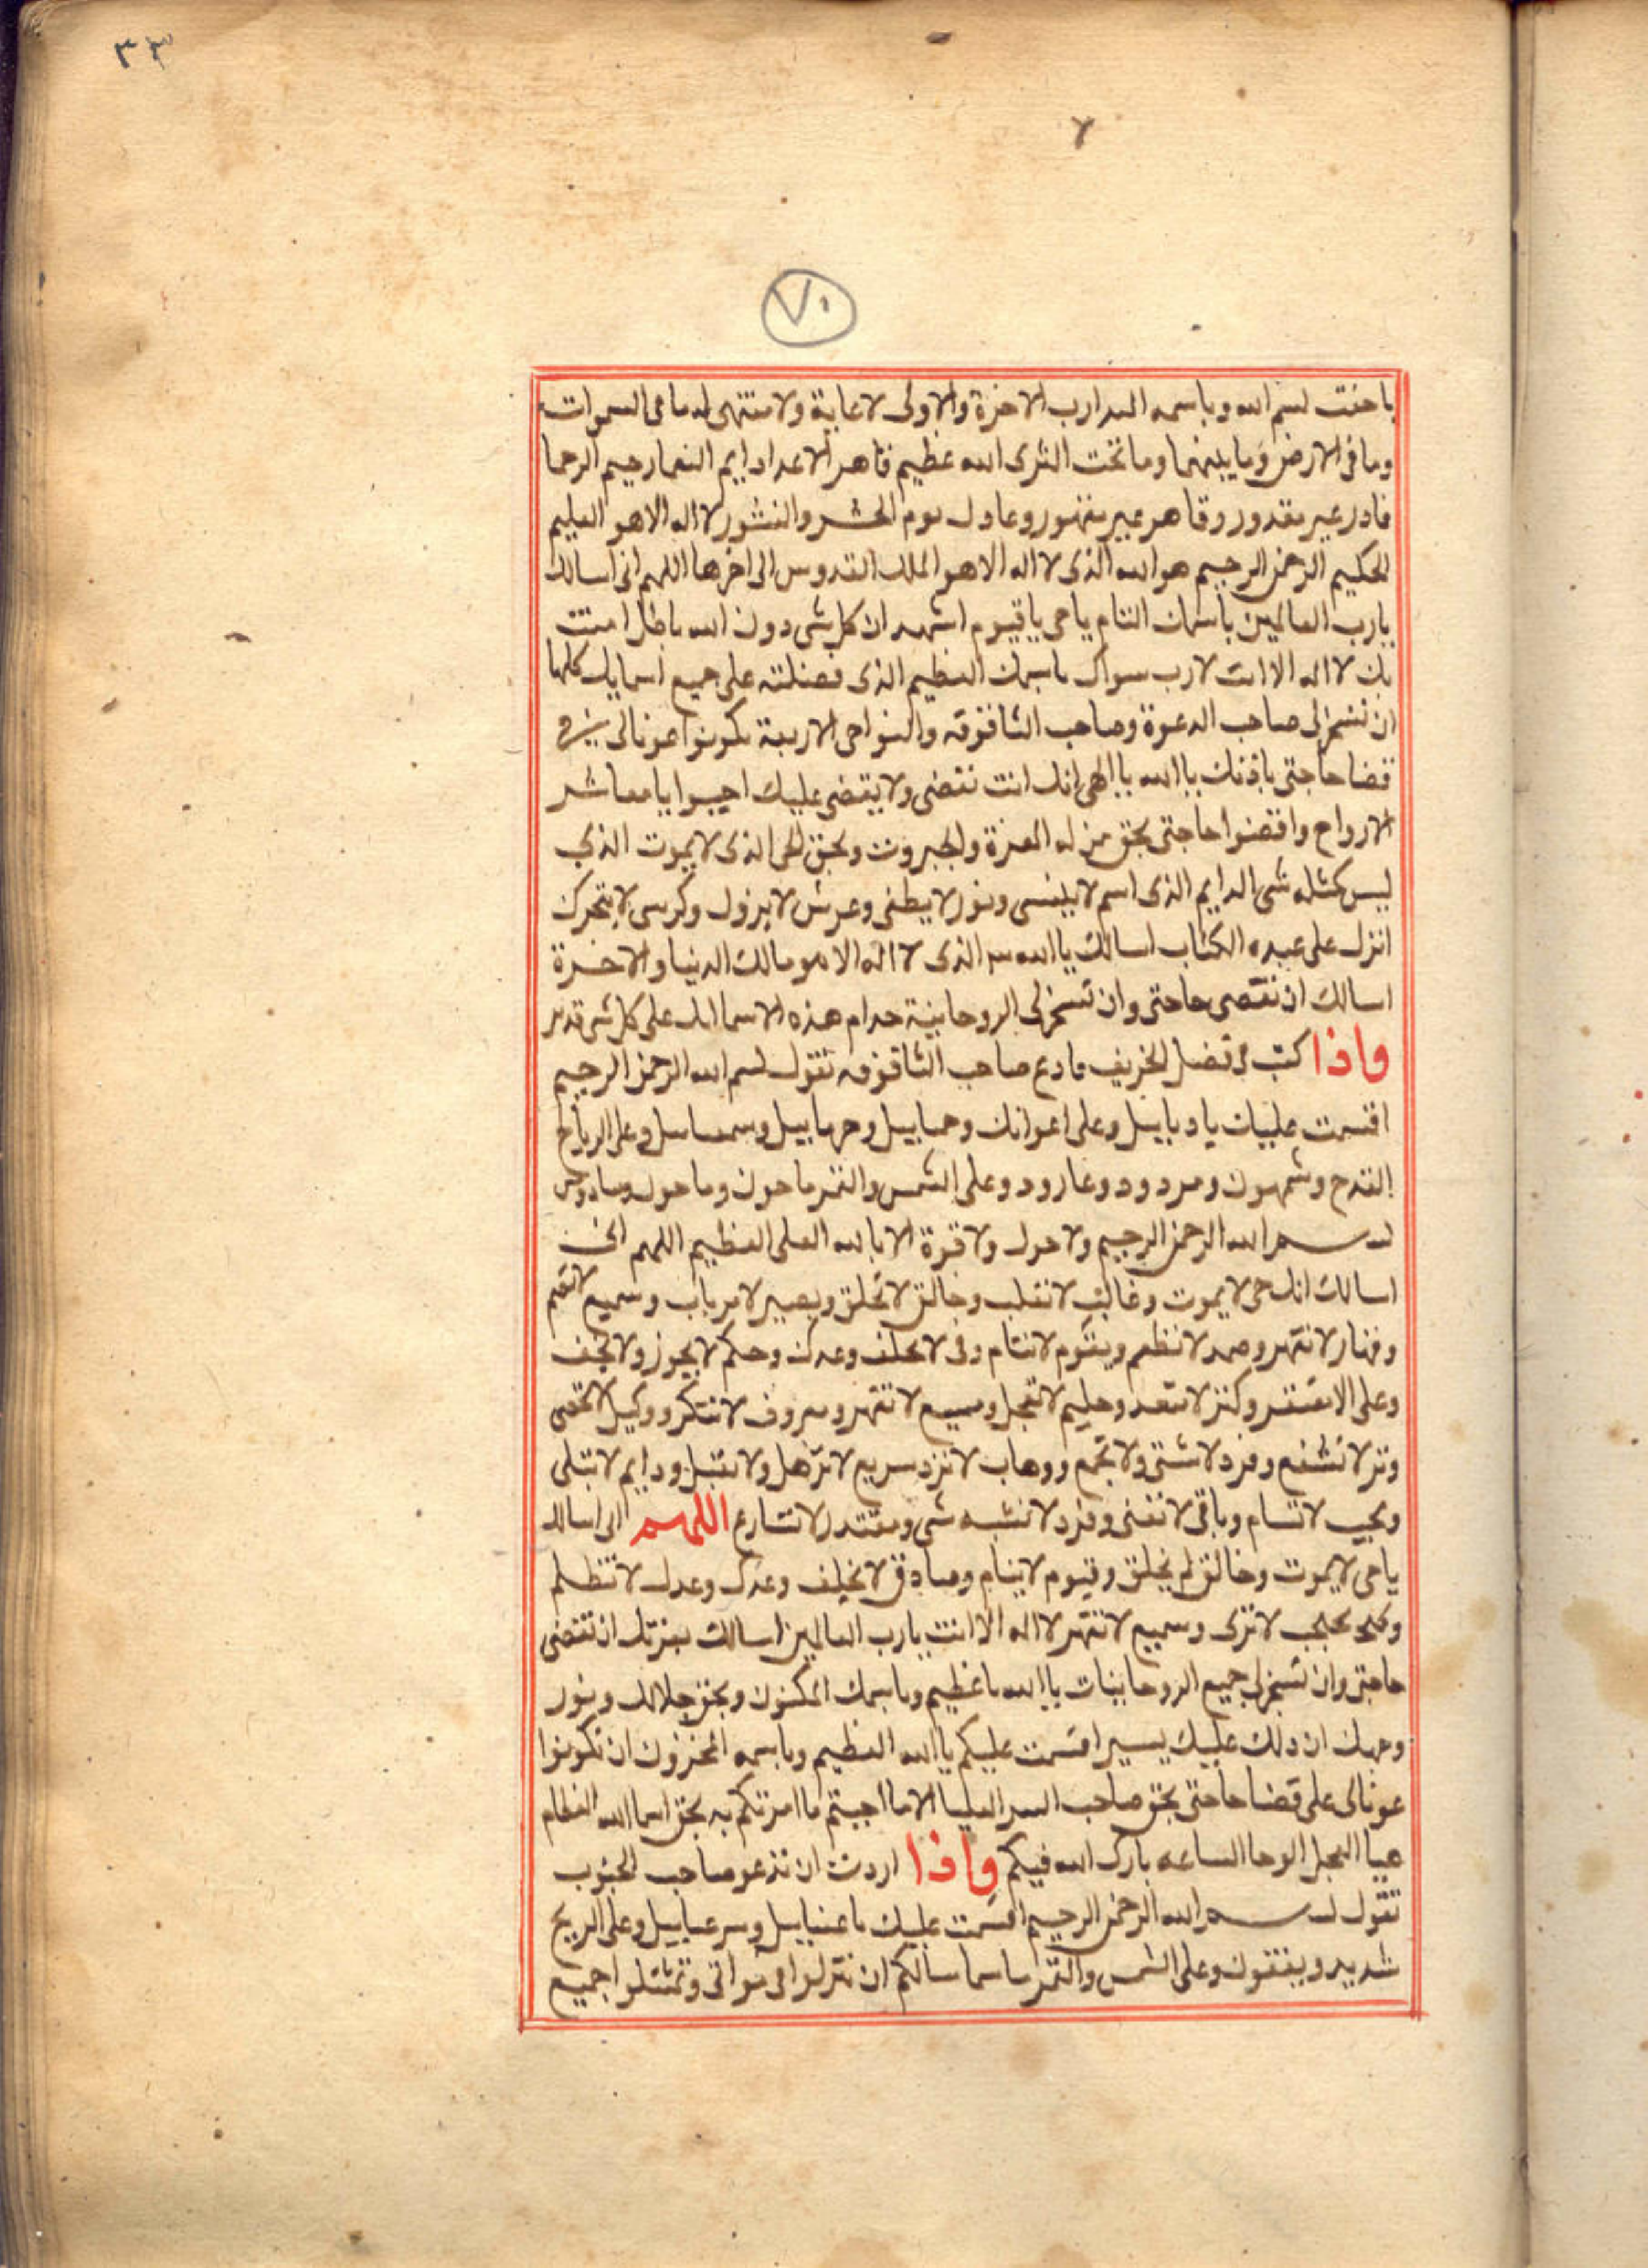 ٣٣
٧
٧٠
باختت بسم الله وباسمه المبدا رب الاخرة والاولى لا غاية ولا منتهى له ما فى السموات
وما فى الارض وما بينهما وما تحت الثرى الله عظيم قاهر الاعدا دايم النعما رحيم الرحما
قادر غير مقدور وقاهر غير مقهور وعادل يوم الحشر والنشور لا اله الا هو العليم
الحكيم الرحمن الرحيم هو الله الذى لا اله الا هو الملك القدوس الى اخرها اللهم انى اسالك
يارب العالمين باسمك التام يا حى يا قيوم اشهد ان كل شى دون الله باطل امنت
بك لا اله الا انت لا رب سواك باسمك العظيم الذى فضلته على جميع اسمايك كلها
ان تسخر لى صاحب الدعوة وصاحب الشاقوقه والنواحى الاربعة يكونوا عونا لى فى
قضا حاجتى باذنك يا الله يا الهى انك انت تقضى ولا يقضى عليك اجيبوا يا معاشر
الارواح واقضوا حاجتى بحق من له العزة والجبروت وبحق الحى الذى لا يموت الذي
ليس كمثله شى الدايم الذى اسم لا ينسى ونور لا يطفى وعرش لا يزول وكرسى لا يتحرك
انزل على عبده الكتاب اسالك يا الله الذى لا اله الا هو مالك الدنيا والاخرة
اسالك ان تقضى حاجتى وان تسخر لى الروحانية خدام هذه الاسما انك على كل شى قدير
واذا كنت فى فصل الخريف فادع صاحب الشاقوقه تقول بسم الله الرحمن الرحيم
اقسمت عليك يا دباييل وعلى اعوانك وحماييل وحرهاييل وسمساسل وعلى الرياح
القدح وشمهون ومردود وعارود وعلى الشمس والقمر ماحون وماحول
بسم الله الرحمن الرحيم ولا حول ولا قوة الا بالله العلى العظيم اللهم انى
اسالك انك حى لا يموت وغالب لا تغلب وخالق لا تخلق وبصير لا مرتاب وسميع
وقهار لا تقهر وصمد لا تطعم وقيوم لا تنام وفى لا تخلف وعدك وحكم لا يجوز ولا يحيف
وعلى الا تفتقر وكنز لا تنفد وحليم لا تعجل وسميع لا تقهر ومعروف لا تنكر ووكيل لا تحصى
وتر لا تشفع وفرد لا تثنى ولا تجمع ووهاب لا ترد سريع لا تذهل ولا تقبل ودايم لا تبلى
ومجيب لا تسام وباقى لا تفنى وفرد لا تشبه شى ومقتدر لا تسارع اللهم انى اسالك
يا حى لا يموت وخالق لم يخلق وقيوم لا ينام وصادق لا تخلف وعدك وعدل لا تظلم
ومحتجب لا ترى وسميع لا تقهر لا اله الا انت يارب العالمين اسالك بعزتك ان تقضى
حاجتى وان تسخر لى جميع الروحانيات يا الله يا عظيم وباسمك المكنون وبحق جلالك ونور
وجهك ان ذلك عليك يسير اقسمت عليكم يا الله العظيم وباسمه المخزون ان تكونوا
عونا لى على قضا حاجتى بحق صاحب السر العليا الا ما اجبتم ما امرتكم به بحق اسما الله العظام
هيا العجل الوحا الساعه بارك الله فيكم واذا اردت ان تدعو صاحب الجنوب
تقول بسم الله الرحمن الرحيم اقسمت عليك يا عنياييل وسرعياييل وعلى الريح
شديد ويفتقون وعلى الشمس والقمر اسالكم ان تنزلوا فى وتمتثلوا جميع